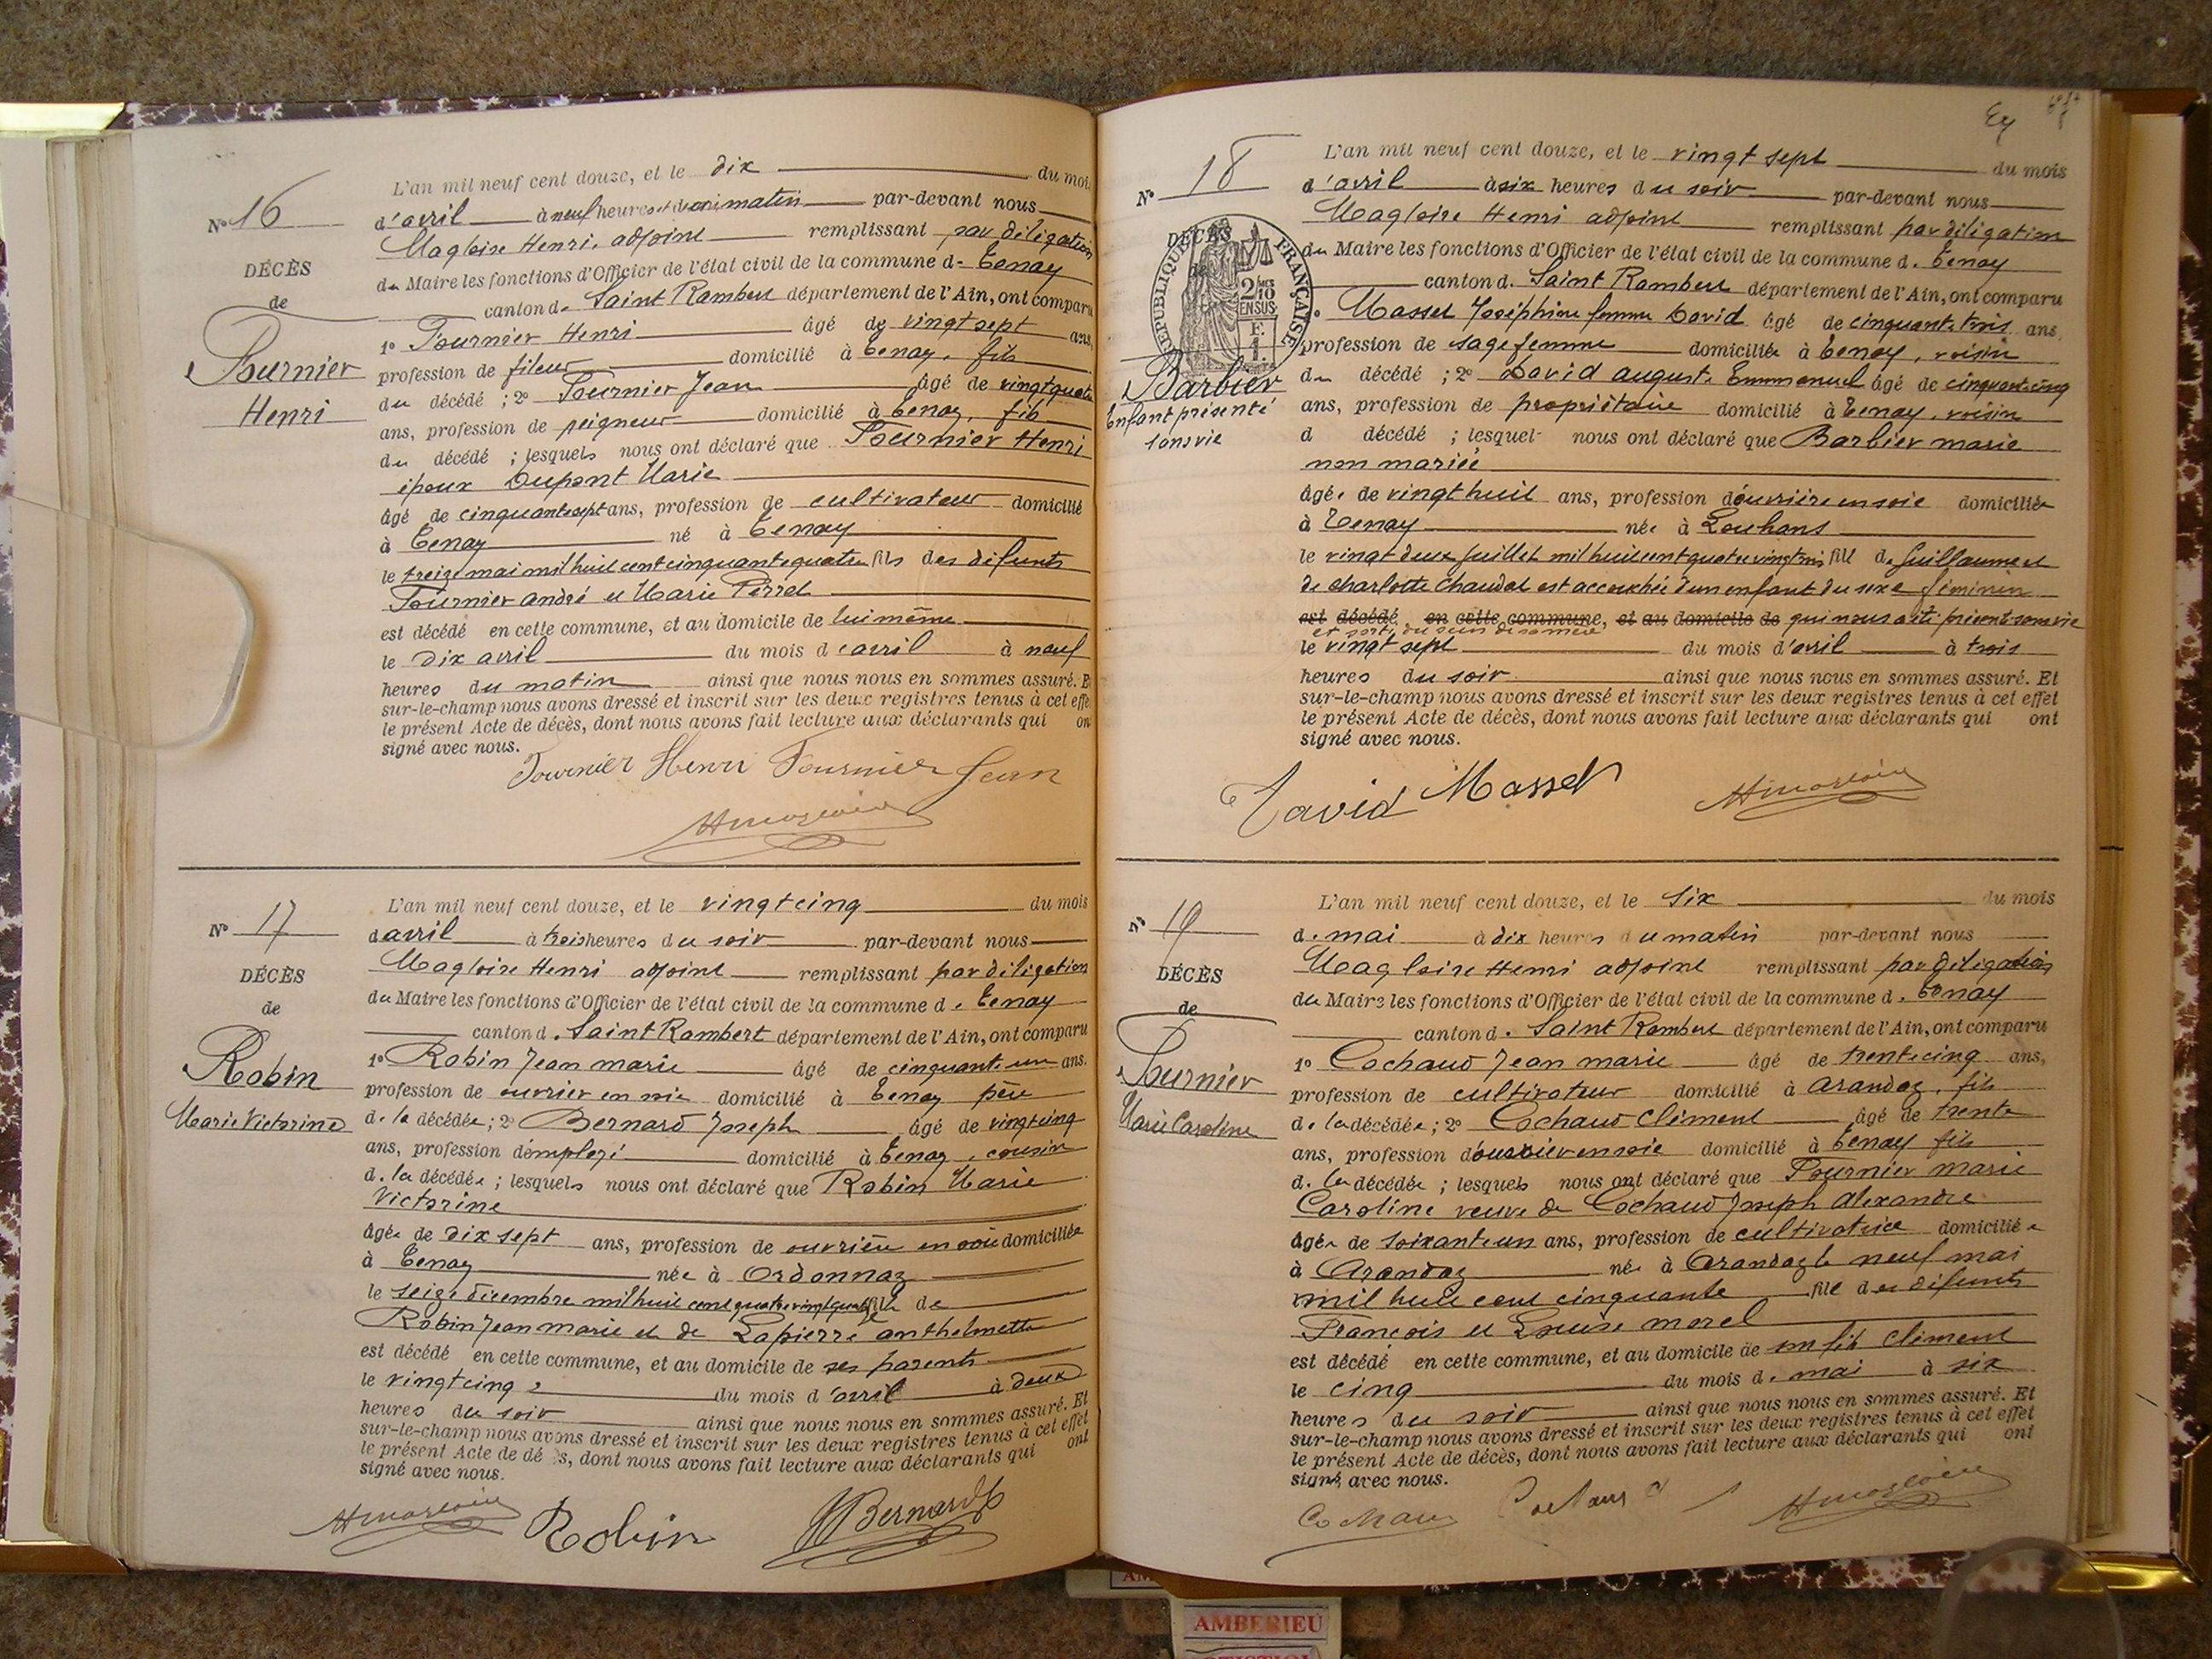 N° 16
DÉCÈS
de
Fournier
Henri
L'an mil neuf cent douze, et le dix du mois
d'avril à neuf heures et demi matin par-devant nous
Magloire Henri, adjoint remplissant par délégation
du Maire les fonctions d'Officier de l'état civil de la commune de Tenay
canton de Saint Rambert département de l'Ain, ont comparu
1° Fournier Henri âgé de vingt sept ans,
profession de fileur domicilié à Tenay, fils
du décédé ; 2° Fournier Jean âgé de vingt quatre
ans, profession de peigneur domicilié à Tenay, fils
du décédé ; lesquels nous ont déclaré que Fournier Henri
époux Dupont Marie
âgé de cinquante sept ans, profession de cultivateur domicilié
à Tenay né à Tenay
le treize mai mil huit cent cinquante quatre fils des défunts
Fournier andré et Marie Pirrel
est décédé en cette commune, et au domicile de lui même
le dix avril du mois d'avril à neuf
heures du matin ainsi que nous nous en sommes assuré. E
sur-le-champ nous avons dressé et inscrit sur les deux registres tenus à cet effe
le présent Acte de décès, dont nous avons fait lecture aux déclarants qui on
signé avec nous.
Fournier Henri Fournier Jean
HMagloire
N° 17
DÉCÈS
de
Robin
Marie Victorine
L'an mil neuf cent douze, et le vingt cinq du mois
d'avril à trois heures du soir par-devant nous
Magloire Henri adjoint remplissant par délégation
du Maire les fonctions d'Officier de l'état civil de la commune de Tenay
canton de Saint Rambert département de l'Ain, ont comparu
1° Robin Jean marie âgé de cinquante un ans.
profession de ouvrier en soie domicilié à Tenay père
de la décédée ; 2° Bernard Joseph âgé de vingt cinq
ans, profession d'employé domicilié à Tenay, cousin
de la décédée ; lesquels nous ont déclaré que Robin Marie
Victorine
âgée de dix sept ans, profession de ouvrière en soie domiciliée
à Tenay née à Ordonnaz
le seize décembre mil huit cent quatre vingt quatorze fille de
Robin Jean marie et de Lapierre anthelmette
est décédé en cette commune, et au domicile de ses parents
le vingt cinq du mois d'avril à deux
heures du soir ainsi que nous nous en sommes assuré. Et
sur-le-champ nous avons dressé et inscrit sur les deux registres tenus à cet effet
le présent Acte de dé s, dont nous avons fait lecture aux déclarants qui ont
signé avec nous.
HMagloire Robin JBernard
N° 18
DÉCÈS
de
RÉPUBLIQUE FRANÇAISE
2/10
EN SUS
F.
1.
Barbier
Enfant présenté
sans vie
L'an mil neuf cent douze, et le vingt sept du mois
d'avril à six heures du soir par-devant nous
Magloire Henri adjoint remplissant par délégation
du Maire les fonctions d'Officier de l'état civil de la commune de Tenay
canton de Saint Rambert département de l'Ain, ont comparu
1° Massel Joséphine femme David âgé de cinquante trois ans,
profession de sage femme domiciliée à Tenay, voisin
du décédé ; 2° David auguste Emmanuel âgé de cinquante cinq
ans, profession de propriétaire domicilié à Tenay, voisin
d décédé ; lesquel nous ont déclaré que Barbier marie
non mariée
âgée de vingt huit ans, profession d'ouvrière en soie domiciliée
à Tenay née à Louhans
le vingt deux Juillet mil huit cent quatre vingt trois fille de Guillaume et
de charlotte Chaudat est accouchée d'un enfant du sexe féminin
est décédé, en cette commune, et au domicile de qui nous a été présenté sans vie
et sorti du sein de sa mère
le vingt sept du mois d'avril à trois
heures du soir ainsi que nous nous en sommes assuré. Et
sur-le-champ nous avons dressé et inscrit sur les deux registres tenus à cet effet
le présent Acte de décès, dont nous avons fait lecture aux déclarants qui ont
signé avec nous.
David Massel HMagloire
N° 19
DÉCÈS
de
Fournier
Marie Caroline
L'an mil neuf cent douze, et le six du mois
de mai à dix heures du matin par-devant nous
Magloire Henri adjoint remplissant par délégation
du Maire les fonctions d'Officier de l'état civil de la commune de Tenay
canton de Saint Rambert département de l'Ain, ont comparu
1° Cochaud Jean marie âgé de trente cinq ans,
profession de cultivateur domicilié à arandaz, fils
de la décédée ; 2° Cochaud Clément âgé de trente
ans, profession d'ouvrier en soie domicilié à Tenay fils
de la décédée ; lesquels nous ont déclaré que Fournier marie
Caroline veuve de Cochaud Joseph Alexandre
âgée de soixante un ans, profession de cultivatrice domiciliée
à Arandaz née à Arandaz le neuf mai
mil huit cent cinquante fille des défunts
François et Louise morel
est décédé en cette commune, et au domicile de son fils Clément
le cinq du mois de mai à six
heures du soir ainsi que nous nous en sommes assuré. Et
sur-le-champ nous avons dressé et inscrit sur les deux registres tenus à cet effet
le présent Acte de décès, dont nous avons fait lecture aux déclarants qui ont
signé avec nous.
Cochaud Cochaud HMagloire
AMBERIEU